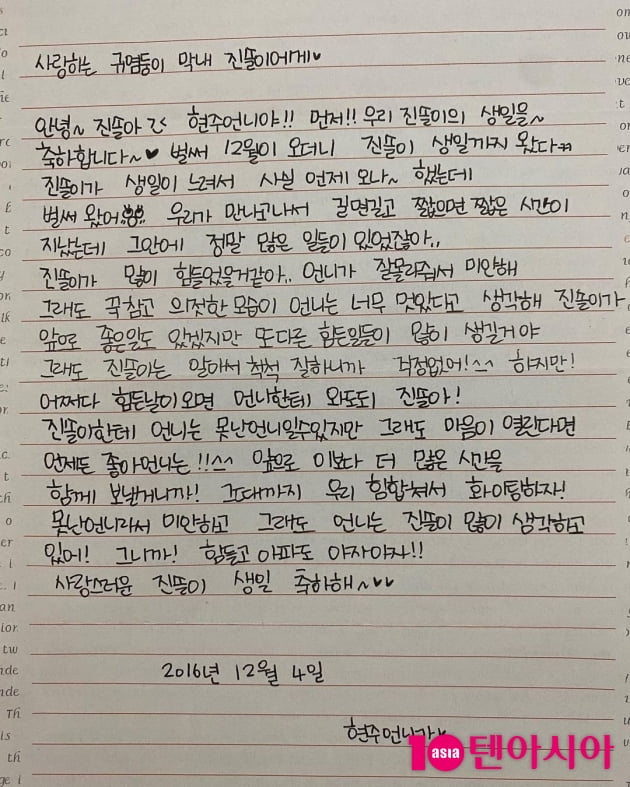 사랑하는 귀염둥이 막내 진뜰이에게♥
안녕~ 진뜰아 현주언니야!! 먼저!! 우리 진뜰이의 생일을~
축하합니다~♥ 벌써 12월이 오더니 진뜰이 생일까지 왔다ㅠㅠ
진뜰이가 생일이 느려서 사실 언제 오나~ 했는데
벌써 왔어 우리가 만나고나서 길면길고 짧으면 짧은 시간이
지났는데 그안에 정말 많은 일들이 있었잖아..
진뜰이가 많이 힘들었을거같아.. 언니가 잘몰라줘서 미안해
그래도 꾹참고 의젓한 모습이 언니는 너무 멋있다고 생각해 진뜰이가
앞으로 좋은일도 있겠지만 또다른 힘든일들이 많이 생길거야
그래도 진뜰이는 알아서 척척 잘하니까 걱정없어!^^ 하지만!
어쩌다 힘든날이오면 언니한테 와도되 진뜰아!
진뜰이한테 언니는 못난언니일수있지만 그래도 마음이 열린다면
언제든 좋아언니는!!^^ 앞으로 이보다 더 많은 시간을
함께 보낼거니까! 그때까지 우리 힘합쳐서 화이팅하자!
못난언니라서 미안하고 그래도 언니는 진뜰이 많이 생각하고
있어! 그니까! 힘들고 아파도 아자아자!!
사랑스러운 진뜰이 생일 축하해~♥♥
2016년 12월 4일
현주언니가♥
10 asia 텐아시아